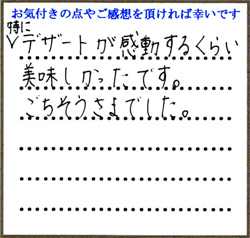 お気付きの点やご感想を頂ければ幸いです
特に
✓デザートが感動するくらい
美味しかったです。
ごちそうさまでした。